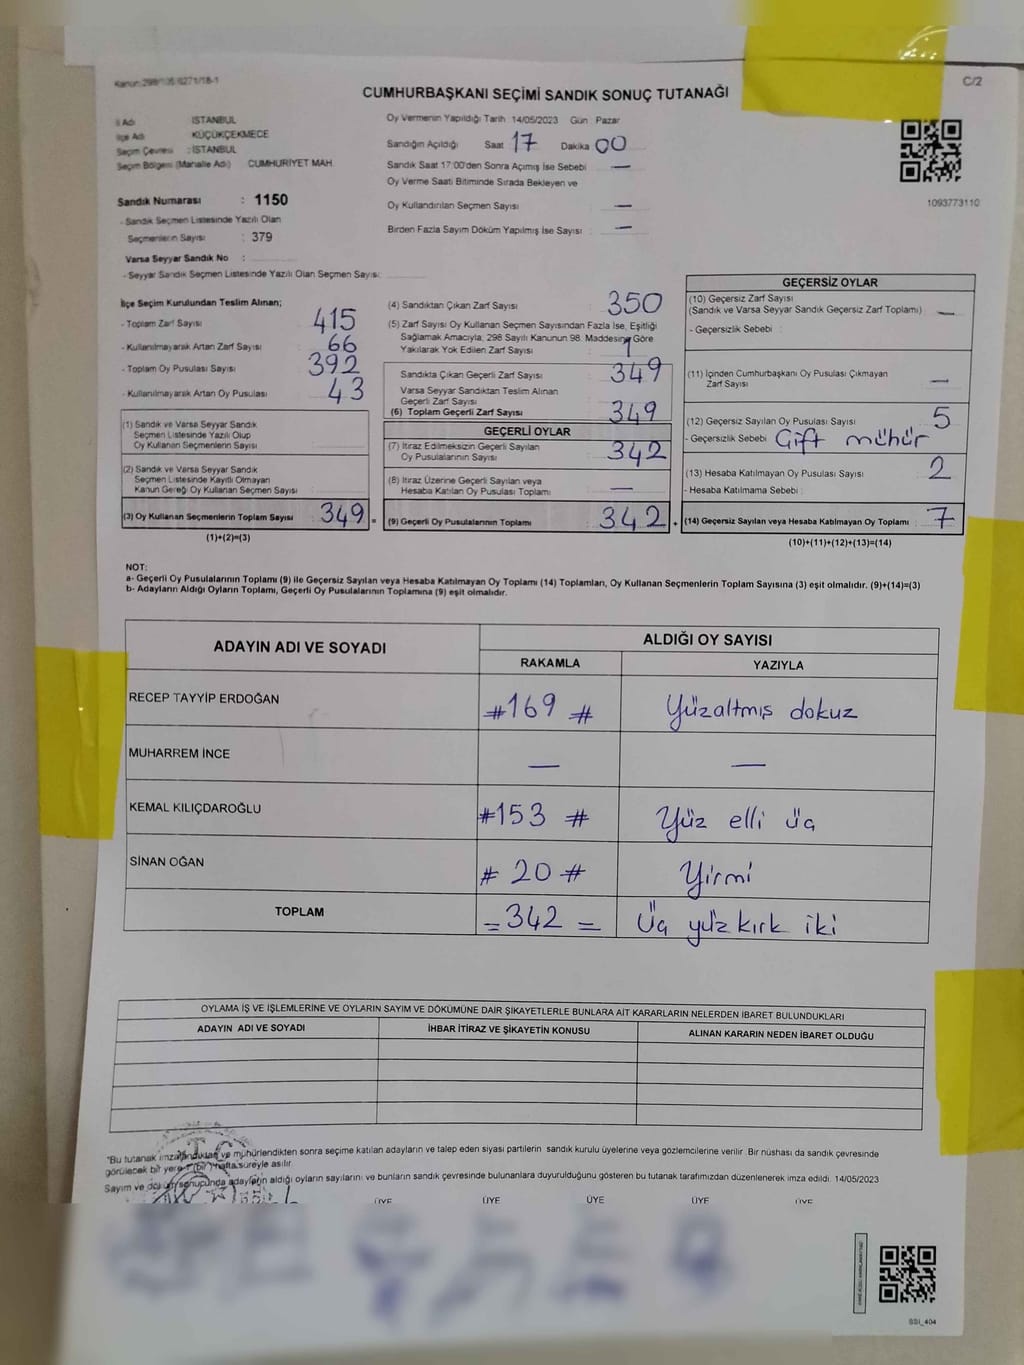 Kanun:298/105 6271/18-1
C/2
CUMHURBAŞKANI SEÇİMİ SANDIK SONUÇ TUTANAĞI
İl Adı : İSTANBUL
İlçe Adı : KÜÇÜKÇEKMECE
Seçim Çevresi : İSTANBUL
Seçim Bölgesi (Mahalle Adı) CUMHURİYET MAH.
Sandık Numarası : 1150
- Sandık Seçmen Listesinde Yazılı Olan
Seçmenlerin Sayısı : 379
Varsa Seyyar Sandık No :
- Seyyar Sandık Seçmen Listesinde Yazılı Olan Seçmen Sayısı:
Oy Vermenin Yapıldığı Tarih 14/05/2023 Gün Pazar
Sandığın Açıldığı Saat 17 Dakika 00
Sandık Saat 17:00'den Sonra Açılmış İse Sebebi : —
Oy Verme Saati Bitiminde Sırada Bekleyen ve
Oy Kullandırılan Seçmen Sayısı : —
Birden Fazla Sayım Döküm Yapılmış İse Sayısı : —
1093773110
İlçe Seçim Kurulundan Teslim Alınan;
- Toplam Zarf Sayısı : 415
- Kullanılmayarak Artan Zarf Sayısı : 66
- Toplam Oy Pusulası Sayısı : 392
- Kullanılmayarak Artan Oy Pusulası : 43
(1) Sandık ve Varsa Seyyar Sandık
Seçmen Listesinde Yazılı Olup
Oy Kullanan Seçmenlerin Sayısı :
(2) Sandık ve Varsa Seyyar Sandık
Seçmen Listesinde Kayıtlı Olmayan
Kanun Gereği Oy Kullanan Seçmen Sayısı :
(3) Oy Kullanan Seçmenlerin Toplam Sayısı : 349 =
(1)+(2)=(3)
(4) Sandıktan Çıkan Zarf Sayısı : 350
(5) Zarf Sayısı Oy Kullanan Seçmen Sayısından Fazla İse, Eşitliği
Sağlamak Amacıyla, 298 Sayılı Kanunun 98. Maddesine Göre
Yakılarak Yok Edilen Zarf Sayısı : 1
Sandıkta Çıkan Geçerli Zarf Sayısı : 349
Varsa Seyyar Sandıktan Teslim Alınan
Geçerli Zarf Sayısı :
(6) Toplam Geçerli Zarf Sayısı : 349
GEÇERLİ OYLAR
(7) İtiraz Edilmeksizin Geçerli Sayılan
Oy Pusulalarının Sayısı : 342
(8) İtiraz Üzerine Geçerli Sayılan veya
Hesaba Katılan Oy Pusulası Toplamı : —
(9) Geçerli Oy Pusulalarının Toplamı : 342 +
GEÇERSİZ OYLAR
(10) Geçersiz Zarf Sayısı
(Sandık ve Varsa Seyyar Sandık Geçersiz Zarf Toplamı) : —
- Geçersizlik Sebebi :
(11) İçinden Cumhurbaşkanı Oy Pusulası Çıkmayan
Zarf Sayısı : —
(12) Geçersiz Sayılan Oy Pusulası Sayısı : 5
- Geçersizlik Sebebi : Çift mühür
(13) Hesaba Katılmayan Oy Pusulası Sayısı : 2
- Hesaba Katılmama Sebebi :
(14) Geçersiz Sayılan veya Hesaba Katılmayan Oy Toplamı : 7
(10)+(11)+(12)+(13)=(14)
NOT:
a- Geçerli Oy Pusulalarının Toplamı (9) ile Geçersiz Sayılan veya Hesaba Katılmayan Oy Toplamı (14) Toplamları, Oy Kullanan Seçmenlerin Toplam Sayısına (3) eşit olmalıdır. (9)+(14)=(3)
b- Adayların Aldığı Oyların Toplamı, Geçerli Oy Pusulalarının Toplamına (9) eşit olmalıdır.
ADAYIN ADI VE SOYADI ALDIĞI OY SAYISI
RAKAMLA YAZIYLA
RECEP TAYYİP ERDOĞAN #169# Yüzaltmış dokuz
MUHARREM İNCE — —
KEMAL KILIÇDAROĞLU #153# Yüz elli üç
SİNAN OĞAN #20# Yirmi
TOPLAM =342= Üç yüz kırk iki
OYLAMA İŞ VE İŞLEMLERİNE VE OYLARIN SAYIM VE DÖKÜMÜNE DAİR ŞİKAYETLERLE BUNLARA AİT KARARLARIN NELERDEN İBARET BULUNDUKLARI
ADAYIN ADI VE SOYADI İHBAR İTİRAZ VE ŞİKAYETİN KONUSU ALINAN KARARIN NEDEN İBARET OLDUĞU
"Bu tutanak imzalandıktan ve mühürlendikten sonra seçime katılan adayların ve talep eden siyasi partilerin sandık kurulu üyelerine veya gözlemcilerine verilir. Bir nüshası da sandık çevresinde
görülecek bir yere 1 (bir) hafta süreyle asılır.
Sayım ve döküm sonucunda adayların aldığı oyların sayılarını ve bunların sandık çevresinde bulunanlara duyurulduğunu gösteren bu tutanak tarafımızdan düzenlenerek imza edildi. 14/05/2023
T.C.
ÜYE ÜYE ÜYE ÜYE ÜYE
SSI_404